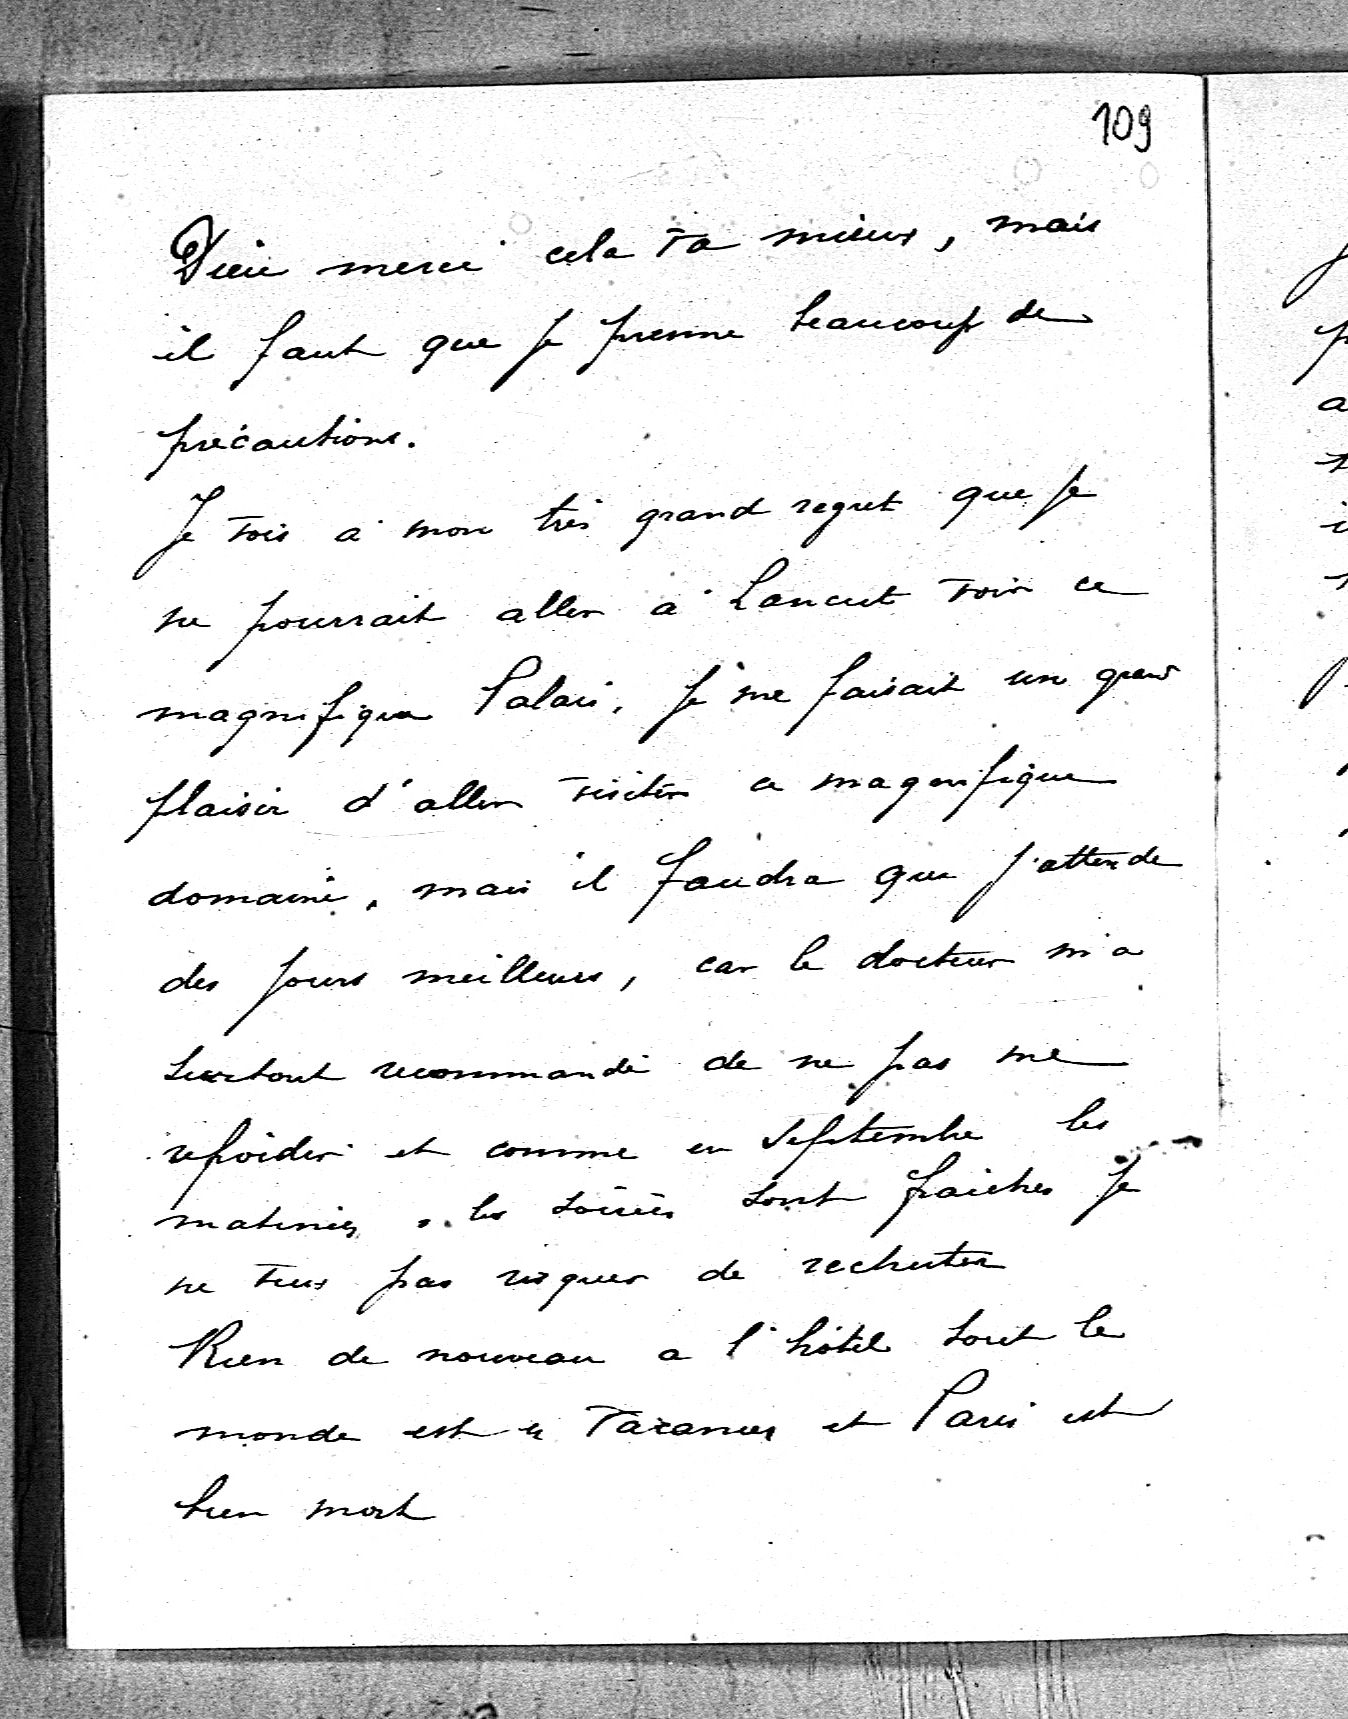 109
Dieu merci cela va mieux, mais
il faut que je prenne beaucoup de
précautions.
Je vois à mon très grand regret que je
ne pourrait aller à Lancut voir ce
magnifique Palais, je me faisait un grand
plaisir d'aller visiter ce magnifique
domaine, mais il faudra que j'attende
des jours meilleurs, car le docteur m'a
surtout recommandé de ne pas me
refroidir et comme en Septembre les
matinées, les soirées sont fraiches je
ne veux pas risquer de rechuter
Rien de nouveau a l'hôtel tout le
monde est en vacances et Paris est
bien mort